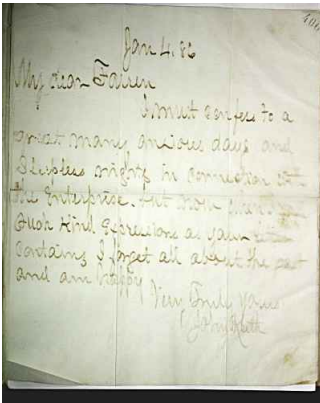 Jan 4. 86
My dear
I must confess to a
great many anxious days and
Sleepless nights in connection with
the Enterprise. But now
Such Kind Expressions as your
Contains I forget all about the past
and am happy
Very Truly Yours
John